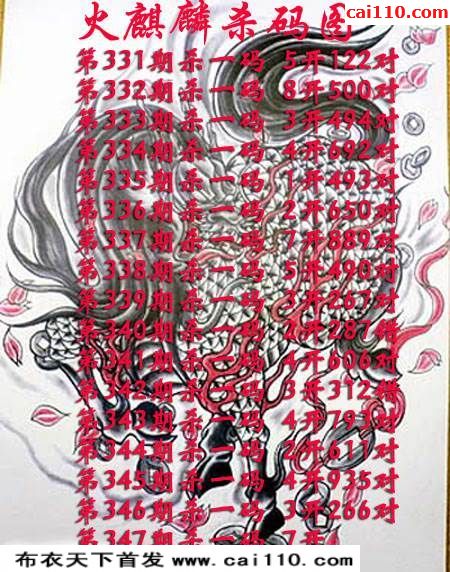 cai110.com
火麒麟杀码图
第331期杀一码 5开122对
第332期杀一码 8开500对
第333期杀一码 3开494对
第334期杀一码 4开692对
第335期杀一码 1开493对
第336期杀一码 2开650对
第337期杀一码 7开889对
第338期杀一码 5开490对
第339期杀一码 3开267对
第340期杀一码 2开287错
第341期杀一码 4开606对
第342期杀一码 3开312错
第343期杀一码 4开793对
第344期杀一码 2开617对
第345期杀一码 4开935对
第346期杀一码 3开266对
第347期杀一码 7开
布衣天下首发 www.cai110.com